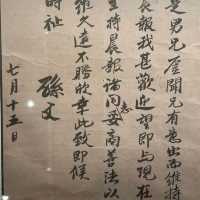 楚男兄鑒聞兄有意出而維持
晨報我甚歡迎望即与現在
主持晨報諸同志妥商善法以
維久遠不勝欣幸此致即候
時祉
孫文
七月十五日